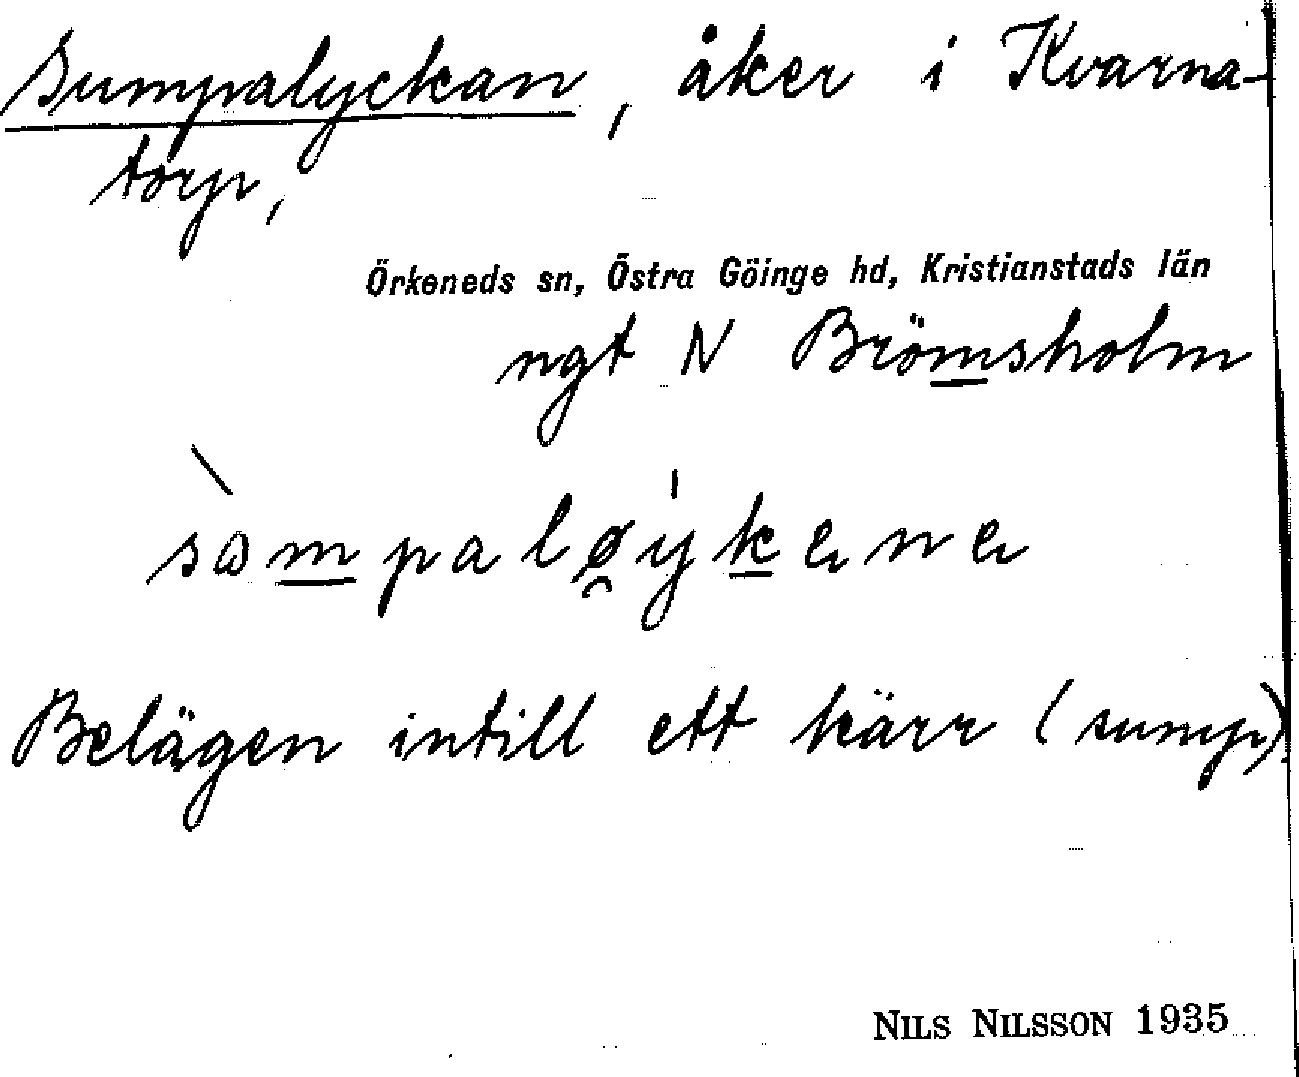 Sumpalyckan, åker i Kvarna-
torp,
Örkeneds sn, Östra Göinge hd, Kristianstads län
ngt N Brömsholm
Belägen intill ett kärr (sump).
NILS NILSSON 1935